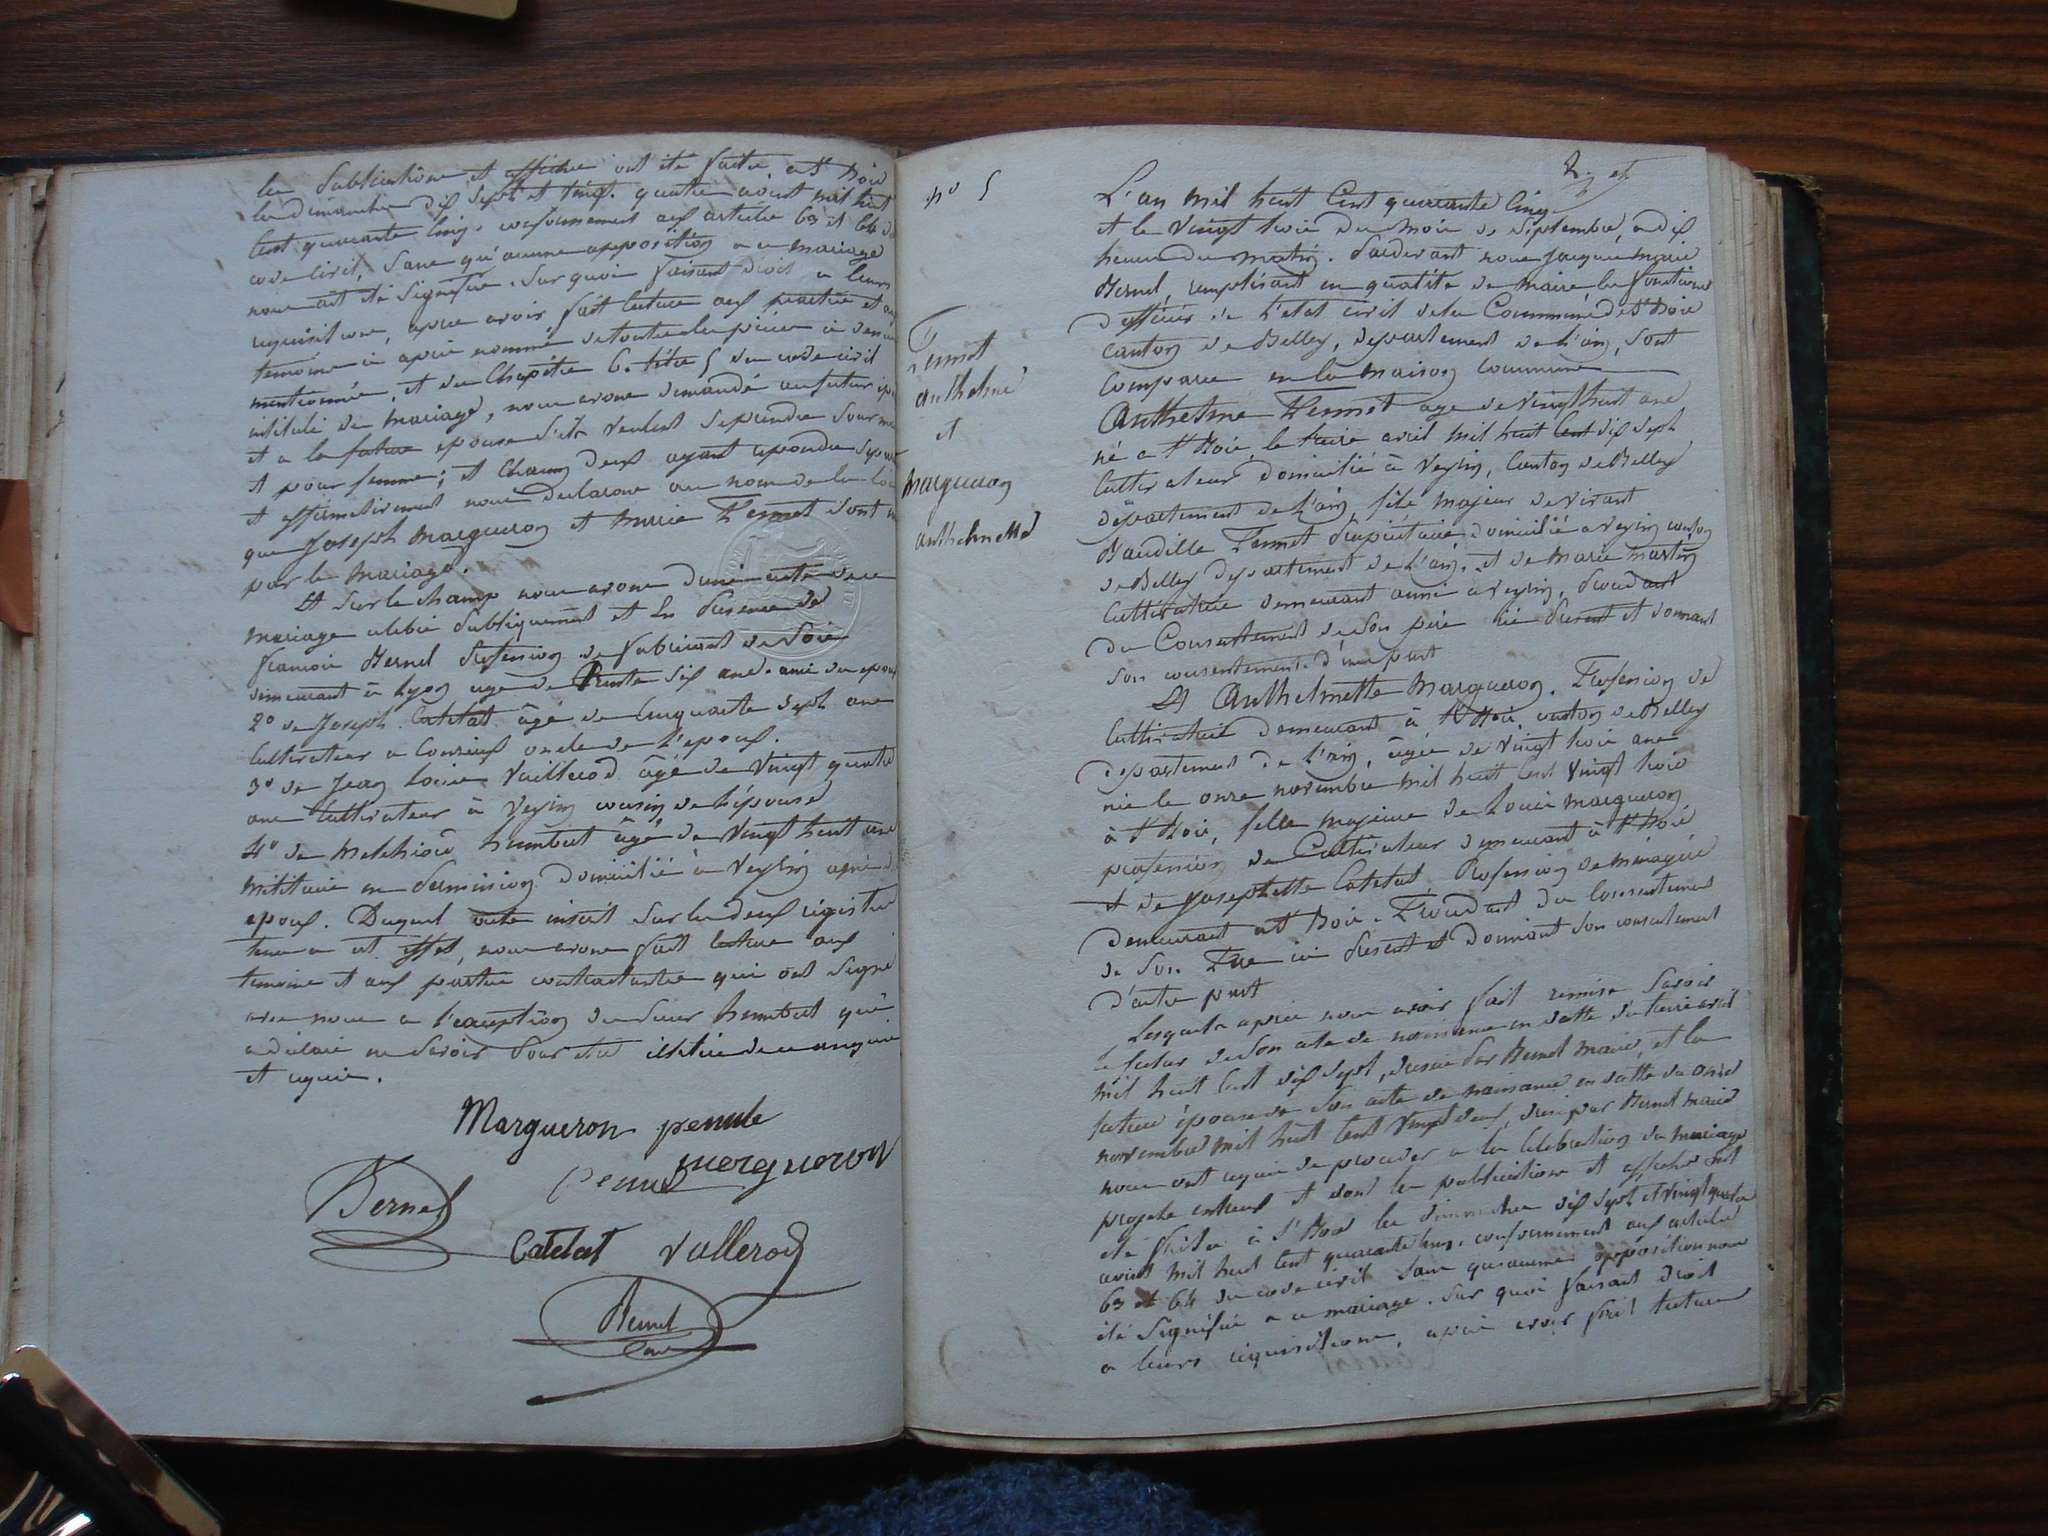 les publications et affiches ont été faites à St Bois
les dimanches dix sept et vingt quatre aout mil huit
cent quarante cinq, conformement aux articles 63 et 64 du
code civil, sans qu'aucune opposition a ce mariage
nous ait été signifiée. Sur quoi faisant droit a leurs
requisitions, après avoir fait lecture aux parties et aux
temoins ci après nommés de toutes les pièces ci dessus
mentionnées, et du Chapitre 6. titre 5 du code civil
intitulé du mariage, nous avons demandé au futur époux
et a la future epouse s'ils veulent se prendre pour mari
et pour femme; et chacun d'eux ayant repondu séparément
et affirmativement nous declarons au nom de la loi
que Joseph Margueron et Marie Pennet sont unis
par le mariage.
Et sur le champ nous avons dressé acte de ce
mariage célébré publiquement et en présence de
françois Bernel profession de fabricant de soie
demeurant à Lyon agé de trente six ans. ami des epoux
2º de Joseph Catelat âgé de cinquante sept ans
cultivateur a Conzieux oncle de l'epoux.
3º de Jean Louis Vaillerod âgé de vingt quatre
ans cultivateur à Veyrin cousin de l'épouse
4º de Melchiord humbert âgé de vingt huit ans
militaire en permission domicilié à Veyrin
epoux. Duquel acte inscrit sur les deux registres
tenus a cet effet, nous avons fait lecture aux
temoins et aux parties contractantes qui ont signé
avec nous a l'exception du sieur humbert qui
a déclaré ne savoir pour être illétré de ce
et requis.
Margueron pennet
Pennet margueron
Bernel
Catelat Vallerod
Bernel
nº 5
Pennet
anthelme
et
Margueron
anthelmette
L'an mil huit cent quarante cinq
et le vingt trois du mois de septembre, a dix
heures du matin. Pardevant nous Jacques marie
Bernel, remplissant en qualité de maire les fonctions
d'officier de l'etat civil de la Commune de St Bois
canton de Belley, departement de l'ain, sont
comparus en la maison Commune
Anthelme Pennet agé de vingt huit ans
né a St Bois, le treize avril mil huit cent dix sept
cultivateur domicilié à Veyrin, canton de Belley
département de l'ain, fils majeur de vivant
Baudille Pennet propriétaire domicilié a Veyrin canton
de Belley departement de l'ain, et de Marie martin
cultivatrice demeurant aussi a veyrin, procédant
du Consentement de son père ici présent et donnant
son consentement d'une part
Et Anthelmette Margueron. Profession de
cultivatrice demeurant à St Bois, canton de Belley
departement de l'ain, âgée de vingt trois ans
née le onze novembre mil huit cent vingt trois
à St Bois, fille majeure de Louis Margueron
profession de Cultivateur demeurant à St Bois
et de Josephette Catelat Profession de ménagère
demeurant a St Bois. Procédant du consentement
de son Père ici présent et donnant son consentement
d'autre part
Lesquels après nous avoir fait remise savoir
le futur de son acte de naissance en datte du treize avril
mil huit cent dix sept, dressé par Bernel maire, et la
future épouse de son acte de naissance en datte du onze
novembre mil huit cent vingt deux, dressé par Bernel maire
nous ont requis de proceder a la célébration du mariage
projeté entreux et dont les publications et affiches ont
été faites à St Bois les dimanches dix sept et vingt quatre
aout mil huit cent quarante cinq. conformement aux articles
63 et 64 du code civil sans qu'aucune opposition nous
été signifiée a ce mariage. Sur quoi faisant droit
a leurs requisitions, après avoir fait lecture